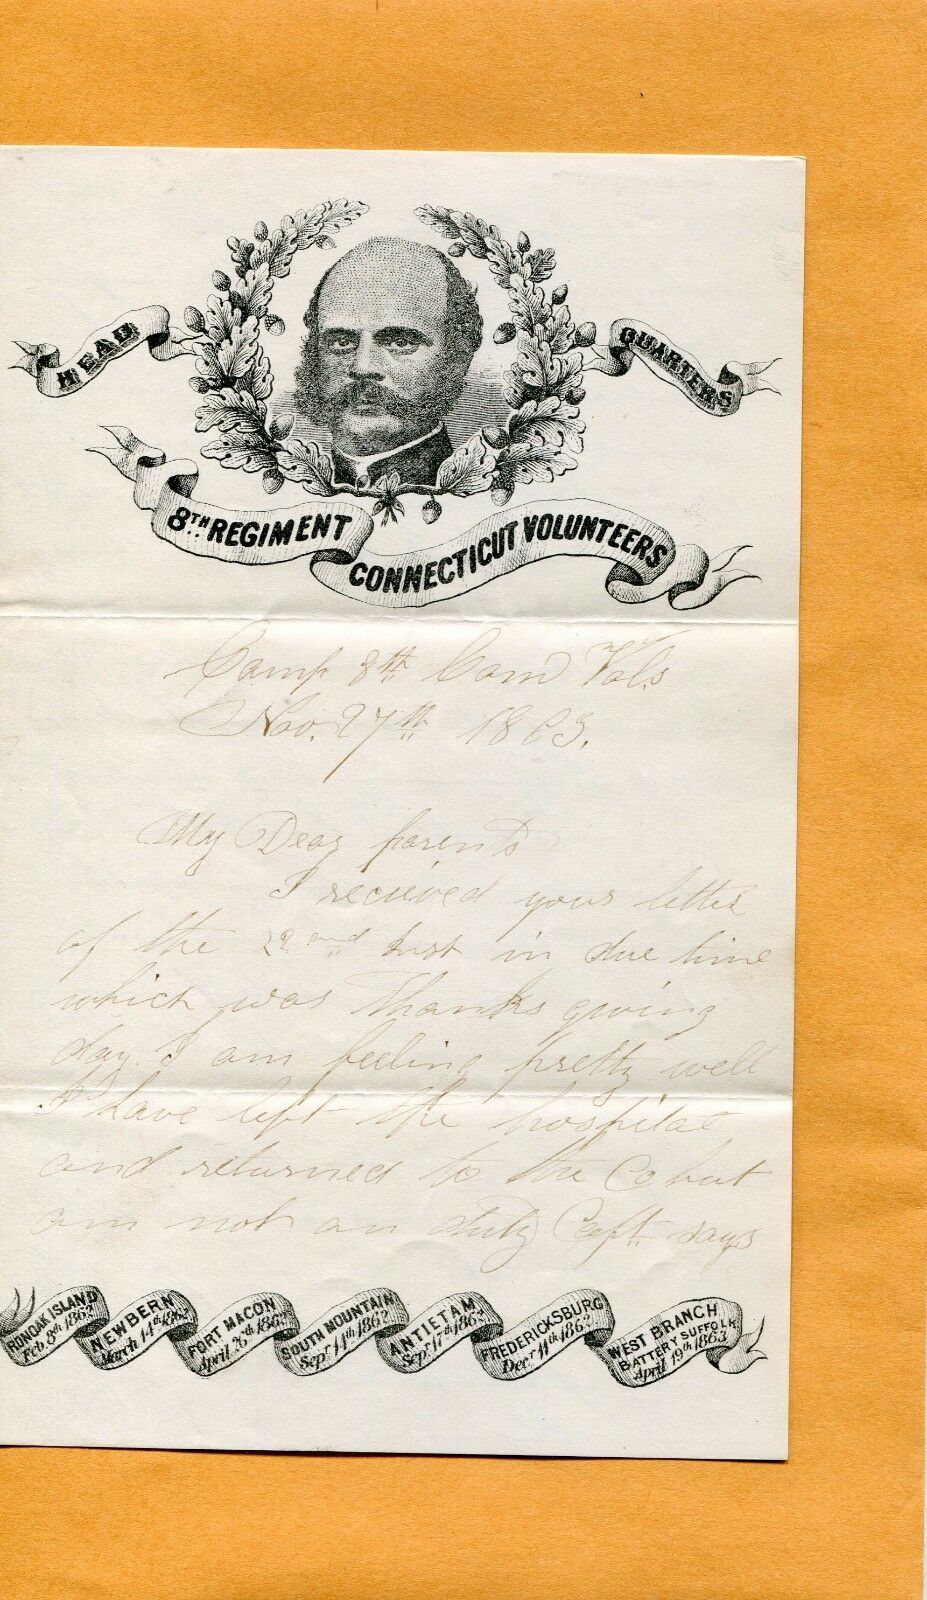 HEAD QUARTERS
8TH REGIMENT
CONNECTICUT VOLUNTEERS
Camp 8th Conn Vols
Nov. 27th 1863.
My Dear parents
I recieved your letter
of the 22nd Inst in due time
which was Thanks giving
day. I am feeling pretty well
I have left the hospital
and returned to the Co but
am not on duty Capt. says
RONOAK ISLAND
Feb. 8th 1862
NEWBERN
March 14th 1862
FORT MACON
April 26th 1862
SOUTH MOUNTAIN
Sepr 14th 1862
ANTIETAM
Sepr 17th 1862
FREDERICKSBURG
Decr 11th 1862
WEST BRANCH
BATTERY SUFFOLK
April 19th 1863